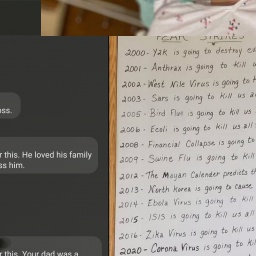 oss.
r this. He loved his family
ss him.
r this. Your dad was a
FEAR STRIKES
2000 - Y2K is going to destroy ev
2001 - Anthrax is going to kill u
2002 - West Nile Virus is going to k
2003 - Sars is going to kill us a
2005 - Bird Flu is going to kill us
2006 - Ecoli is going to kill us all
2008 - Financial Collapse is going to
2009 - Swine Flu is going to kill
2012 - The Mayan Calender predicts th
2013 - North Korea is going to cause
2014 - Ebola Virus is going to kill
2015 - ISIS is going to kill us all
2016 - Zika Virus is going to kill us
2020 - Corona Virus is going to kil